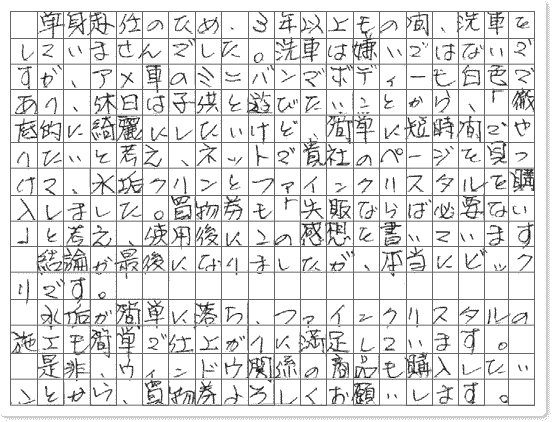 単身赴任のため、3年以上もの間、洗車を
していませんでした。洗車は嫌いではないで
すが、アメ車のミニバンでボディーも白色で
あり、休日は子供と遊びたいことから、「徹
底的に綺麗にしたいけど、簡単に短時間でや
りたいと考え、ネットで貴社のページを見つ
けて、水垢クリンとファインクリスタルを購
入しました。買物券も「失敗ならば必要ない
」と考え、使用後にこの感想を書いています
結論が最後になりましたが、本当にビック
リです。
水垢が簡単に落ち、ファインクリスタルの
施工も簡単で仕上がりに満足しています。
是非、ウィンドウ関係の商品も購入したい
ことから、買物券よろしくお願いします。